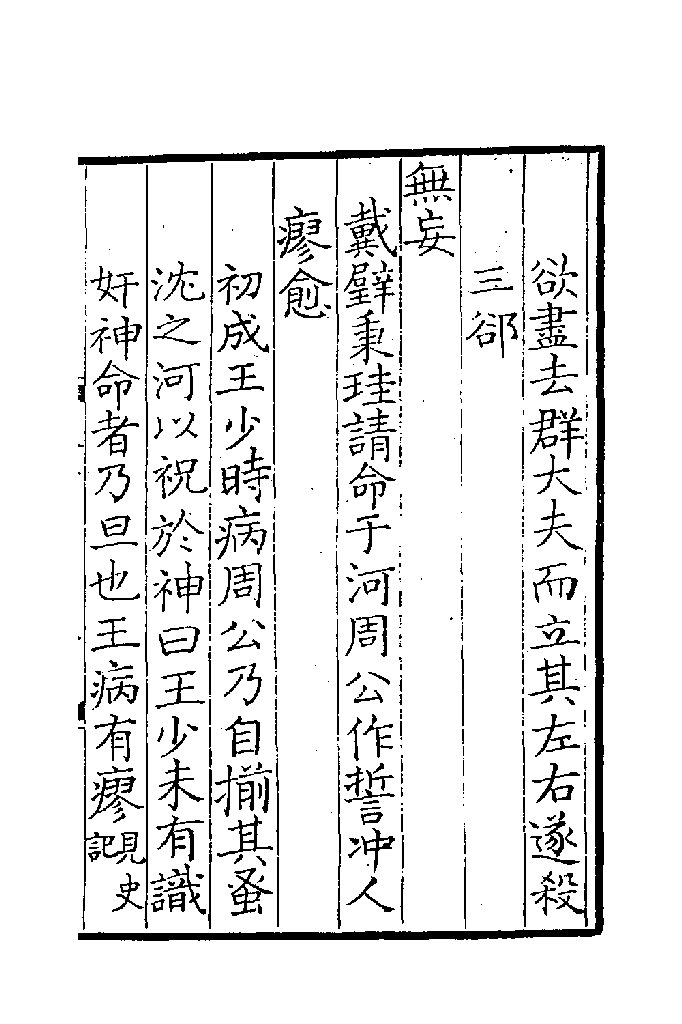 欲盡去群大夫而立其左右遂殺
三郤
無妄
戴璧秉珪請命于河周公作誓冲人
瘳愈
初成王少時病周公乃自揃其蚤
沈之河以祝於神曰王少未有識
奸神命者乃旦也王病有瘳見史記